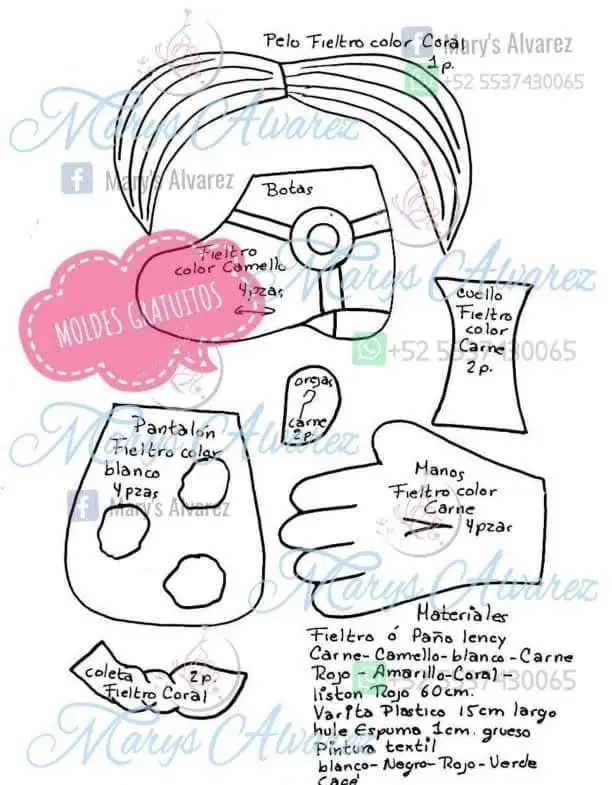 Pelo Fieltro color Coral
1p.
Mary's Alvarez
+52 5537430065
Marys Alvarez
Mary's Alvarez
Botas
Fieltro
color Camello
4 pzas
Marys Alvarez
MOLDES GRATUITOS
cuello
Fieltro
color
Carne
2 p.
+52 5537430065
orejas
?
carne
2p.
Marys Alvarez
Pantalón
Fieltro color
blanco
4 pzas
Mary's Alvarez
Manos
Fieltro color
Carne
4pzas
Marys Alvarez
coleta 2 p.
Fieltro Coral
Marys Alvarez
Materiales
Fieltro ó Paño lency
Carne-Camello-blanco-Carne
Rojo - Amarillo-Coral -
liston Rojo 60 cm.
+52 5537430065
Varita Plastico 15cm largo
hule Espuma 1cm. grueso
Pintura textil
blanco-Negro-Rojo-Verde
Café
Marys Alvarez